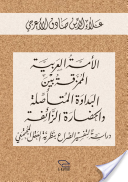 علاء الدين صادق الأعرجي
الأمة العربية
الممزقة بين
البداوة المتأصلة
والحضارة الزائفة
دراسة لتفسير الصراع بنظرية العقل المجتمعي